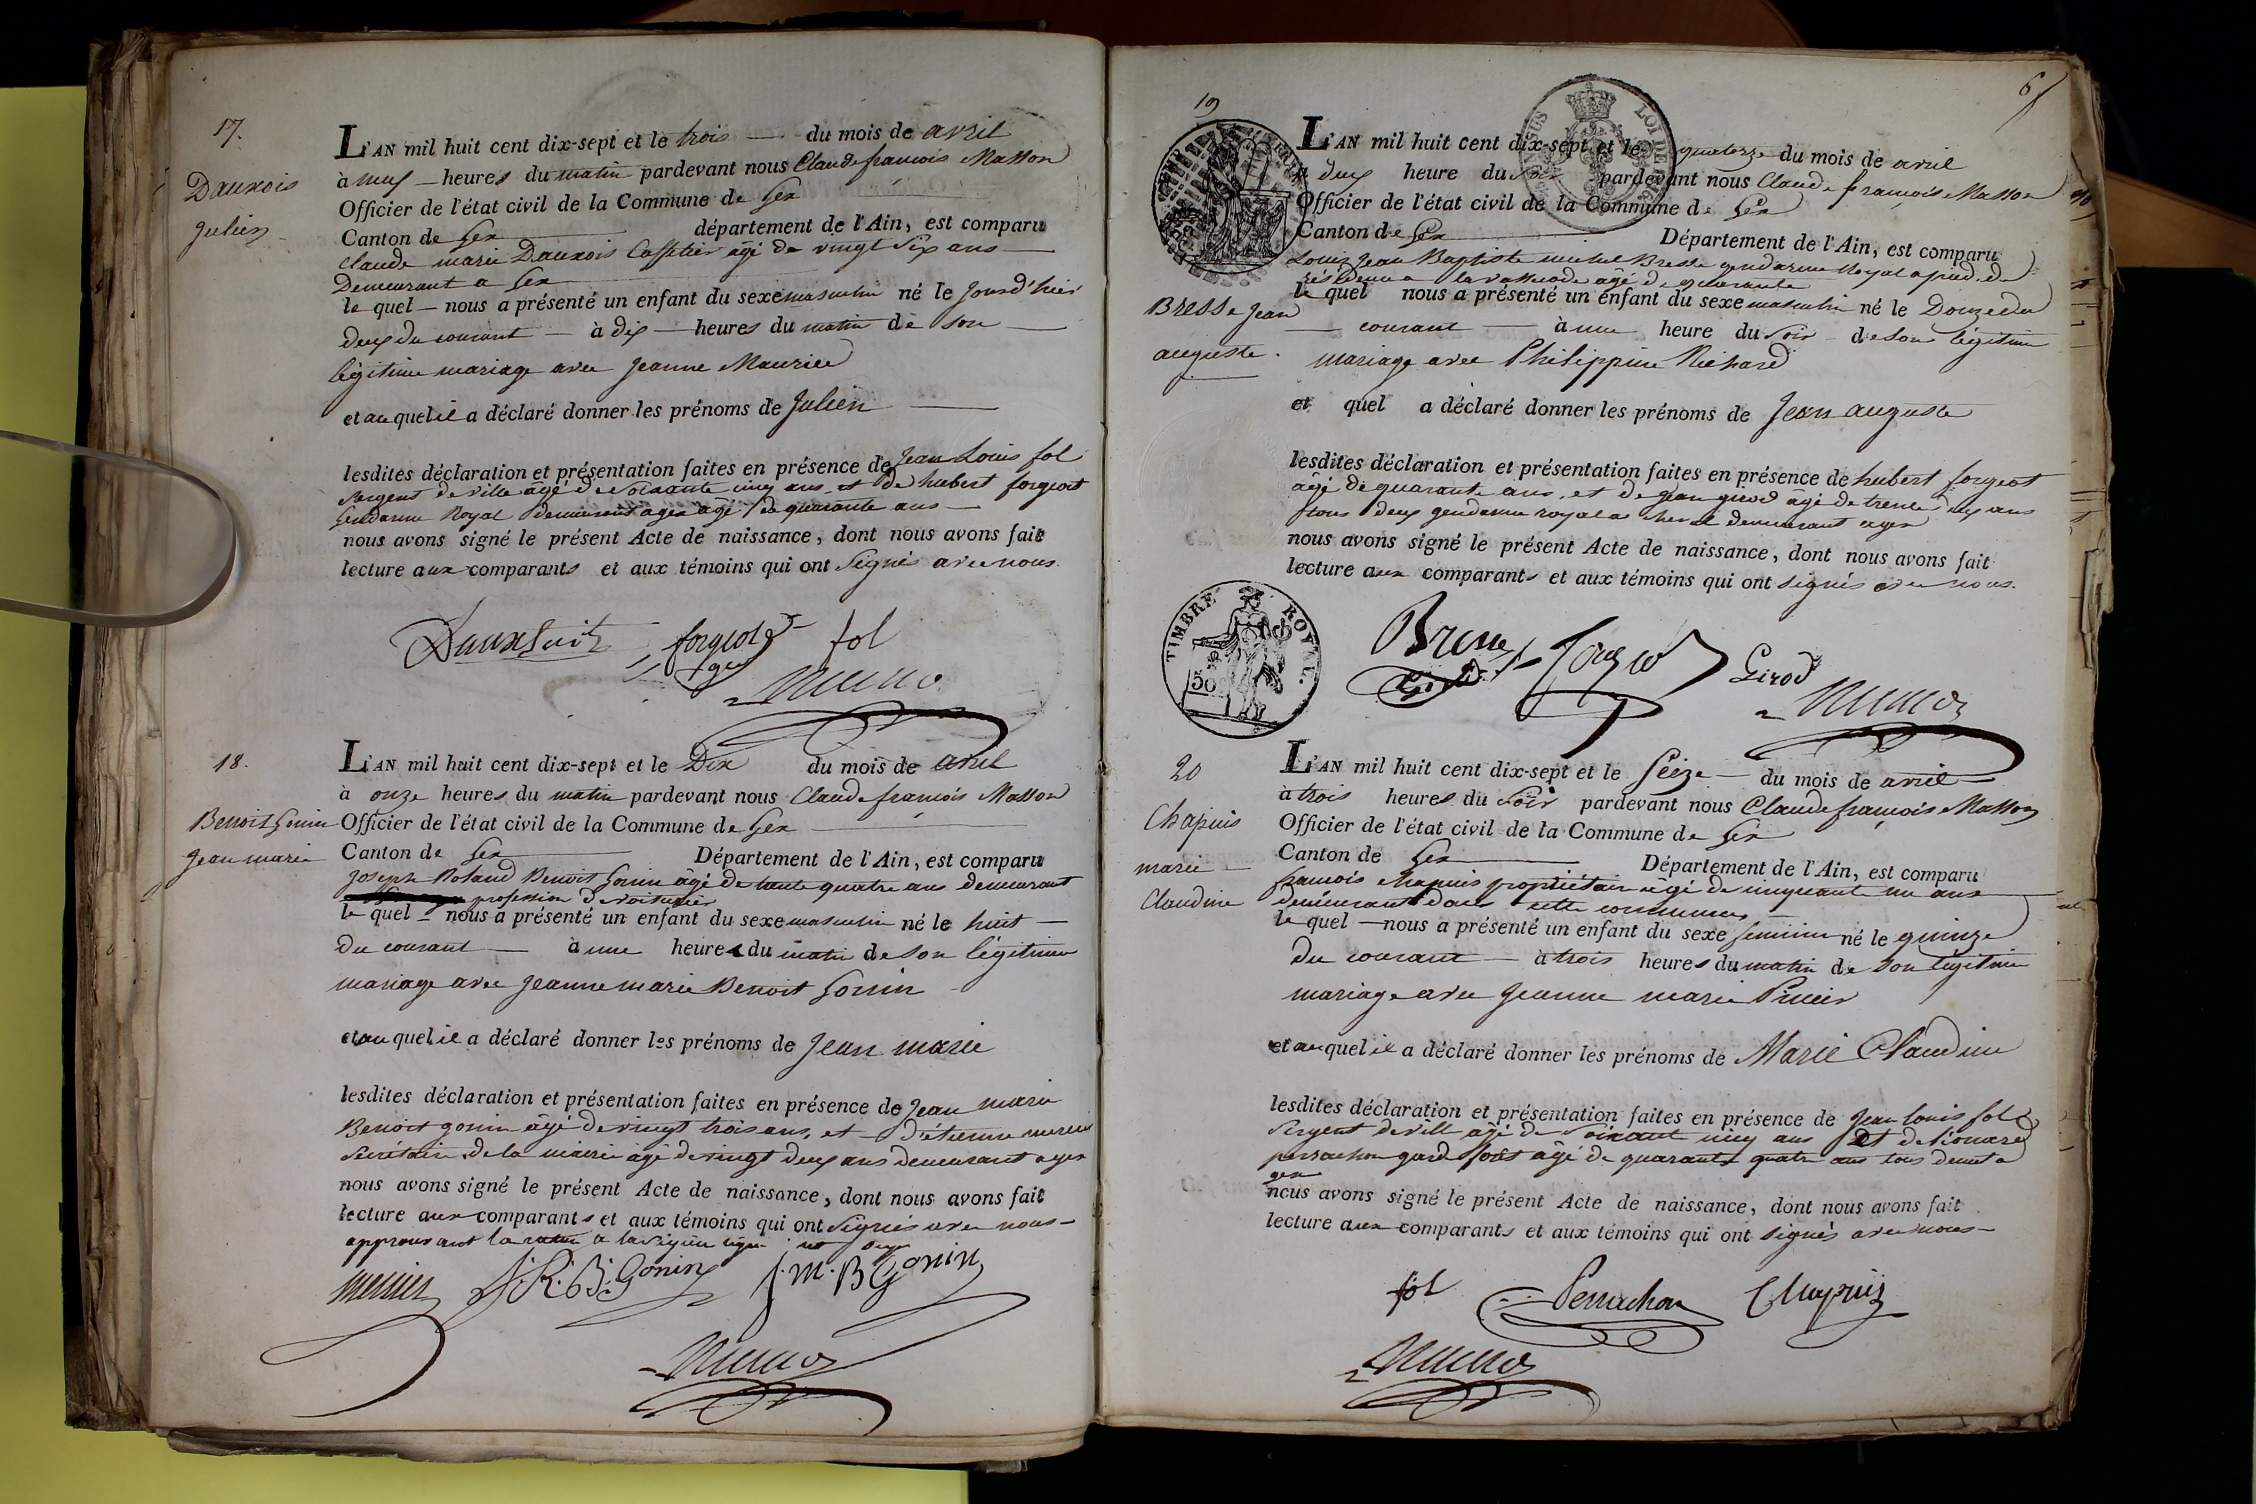 17.
Dauxois
Julien
L'AN mil huit cent dix-sept et le trois du mois de avril
à neuf heures du matin pardevant nous Claude françois Masson
Officier de l'état civil de la Commune de Gex
Canton de Gex département de l'Ain, est comparu
Claude marie Dauxois Caffetier âgé de vingt Six ans
Demeurant a Gex
le quel nous a présenté un enfant du sexe masculin né le Jourd'hier
deux du courant à dix heures du matin de son
légitime mariage avec Jeanne Maurier
et au quel il a déclaré donner les prénoms de Julien
lesdites déclaration et présentation faites en présence de Jean Louis fol
Sergent de ville âgé de Soixante cinq ans et de hubert forgeot
Gendarme Royal demeurant a gex âgé de quarante ans
nous avons signé le présent Acte de naissance, dont nous avons fait
lecture aux comparants et aux témoins qui ont Signés avec nous.
forgeot fol
18.
Benoit Gonin
Jean marie
L'AN mil huit cent dix-sept et le Dix du mois de avril
à onze heures du matin pardevant nous Claude françois Masson
Officier de l'état civil de la Commune de Gex
Canton de Gex Département de l'Ain, est comparu
Joseph Roland Benoit Gonin âgé de trente quatre ans demeurant
profession de voiturier
le quel nous a présenté un enfant du sexe masculin né le huit
du courant à une heure du matin de son légitime
mariage avec Jeanne marie Benoit Gonin
et au quel il a déclaré donner les prénoms de Jean marie
lesdites déclaration et présentation faites en présence de Jean marie
Benoit gonin âgé de vingt trois ans, et d'étienne mercier
Secrétaire de la mairie âgé de vingt deux ans demeurant a gex
nous avons signé le présent Acte de naissance, dont nous avons fait
lecture aux comparants et aux témoins qui ont signés avec nous
approuvant la
mercier J. R. B. Gonin J. M. B Gonin
6
19
Bresse Jean
auguste.
L'AN mil huit cent dix-sept et le quatorze du mois de avril
à deux heure du Soir pardevant nous Claude françois Masson
Officier de l'état civil de la Commune de Gex
Canton de Gex Département de l'Ain, est comparu
Louis Jean Baptiste michel Bresse gendarme Royal a pied de
résidence a la vattode âgé de quarante
le quel nous a présenté un enfant du sexe masculin né le Douze du
courant à une heure du Soir de son légitime
mariage avec Philippine Richard
et quel a déclaré donner les prénoms de Jean auguste
lesdites déclaration et présentation faites en présence de hubert forgeot
âgé de quarante ans, et de jean girod âgé de trente ans
tous deux gendarme royal a cheval demeurant a gex
nous avons signé le présent Acte de naissance, dont nous avons fait
lecture aux comparants et aux témoins qui ont signés avec nous.
TIMBRE ROYAL.
50
Bresse Girod
20
Chapuis
marie
Claudine
L'AN mil huit cent dix-sept et le Seize du mois de avril
à trois heures du Soir pardevant nous Claude françois Masson
Officier de l'état civil de la Commune de Gex
Canton de Gex Département de l'Ain, est comparu
françois chapuis propriétaire âgé de cinquante un ans
demeurant dans cette commune
le quel nous a présenté un enfant du sexe feminin né le quinze
du courant à trois heures du matin de son légitime
mariage avec Jeanne marie
et au quel il a déclaré donner les prénoms de Marie Claudine
lesdites déclaration et présentation faites en présence de Jean louis fol
Sergent de ville âgé de soixante cinq ans Et de léonard
perrachon garde forêt âgé de quarante quatre ans tous demeurt a
gex
nous avons signé le présent Acte de naissance, dont nous avons fait
lecture aux comparants et aux témoins qui ont signés avec nous
fol Perrachon Chapuis